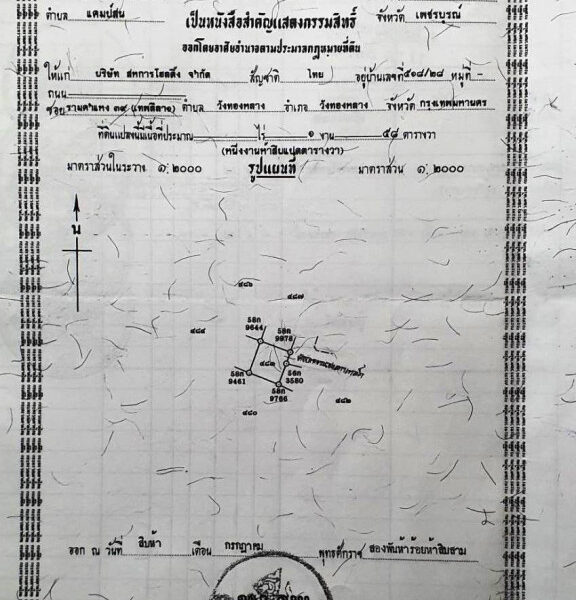 ตำบล แคมป์สน จังหวัด เพชรบูรณ์
เป็นหนังสือสำคัญแสดงกรรมสิทธิ์
ออกโดยอาศัยอำนาจตามประมวลกฎหมายที่ดิน
ให้แก่ บริษัท สหการโฮลดิ้ง จำกัด สัญชาติ ไทย อยู่บ้านเลขที่ ๕๑๘/๒๘ หมู่ที่ -
ถนน
ซอย รามคำแหง ๓๙ (เทพลีลา) ตำบล วังทองหลาง อำเภอ วังทองหลาง จังหวัด กรุงเทพมหานคร
ที่ดินแปลงนี้มีเนื้อที่ประมาณ - ไร่ ๑ งาน ๕๘ ตารางวา
(หนึ่งงานห้าสิบแปดตารางวา)
มาตราส่วนในระวาง ๑:๒๐๐๐ รูปแผนที่ มาตราส่วน ๑:๒๐๐๐
น
๔๘๖
๔๘๗
๔๘๔
58ก 9644
58ก 9878
๔๘๑
58ก 9461
56ก 3580
58ก 9766
๔๘๐
๔๘๒
ออก ณ วันที่ สิบห้า เดือน กรกฎาคม พุทธศักราช สองพันห้าร้อยห้าสิบสาม